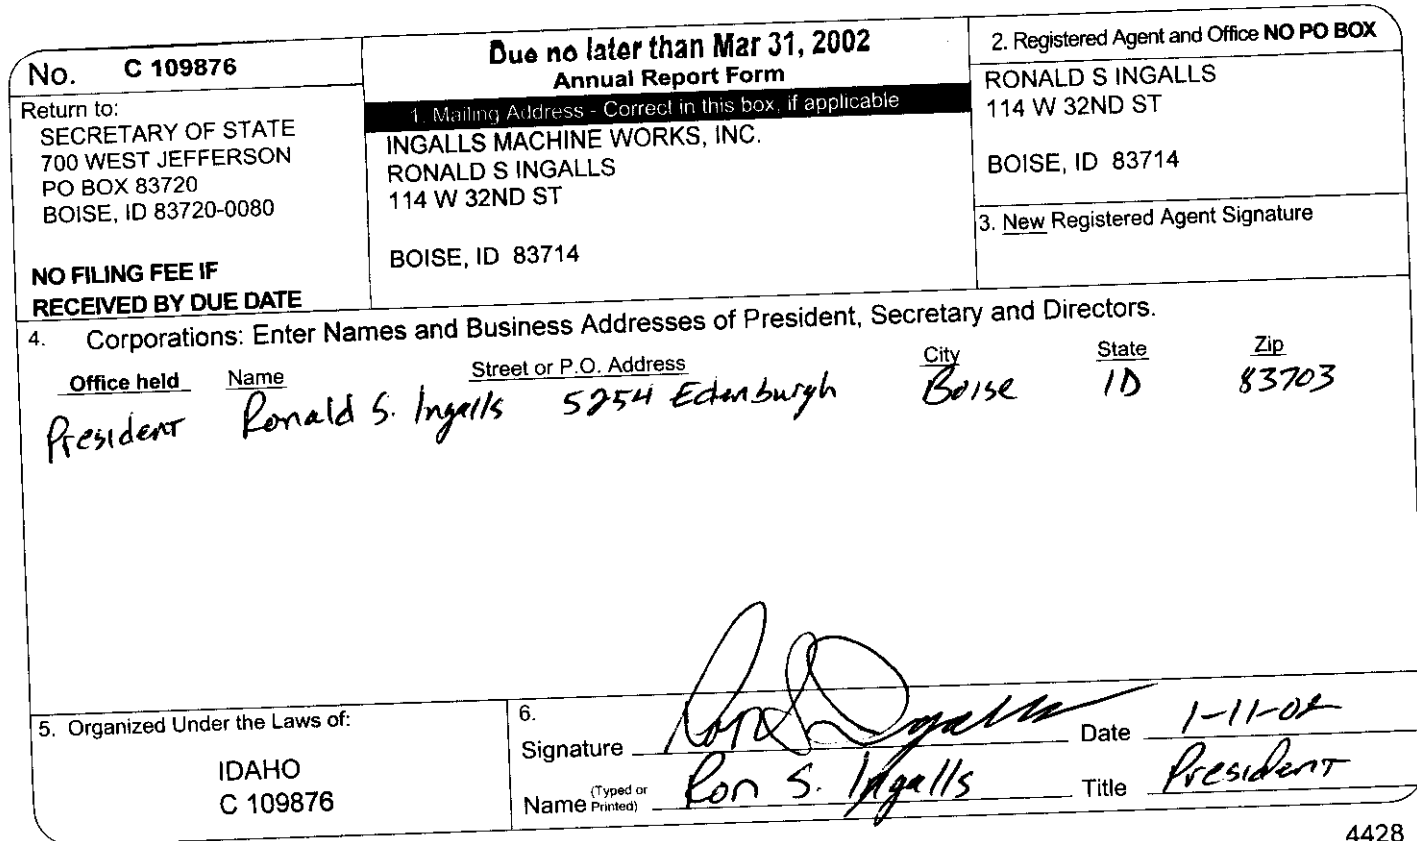 No. C 109876
Return to:
SECRETARY OF STATE
700 WEST JEFFERSON
PO BOX 83720
BOISE, ID 83720-0080
NO FILING FEE IF
RECEIVED BY DUE DATE
Due no later than Mar 31, 2002
Annual Report Form
1. Mailing Address - Correct in this box, if applicable
INGALLS MACHINE WORKS, INC.
RONALD S INGALLS
114 W 32ND ST
BOISE, ID 83714
2. Registered Agent and Office NO PO BOX
RONALD S INGALLS
114 W 32ND ST
BOISE, ID 83714
3. New Registered Agent Signature
4. Corporations: Enter Names and Business Addresses of President, Secretary and Directors.
Office held Name Street or P.O. Address City State Zip
President Ronald S. Ingalls 5254 Edenburgh Boise ID 83703
5. Organized Under the Laws of:
IDAHO
C 109876
6.
Signature Ron S Ingalls Date 1-11-02
Name (Typed or Printed) Ron S. Ingalls Title President
4428